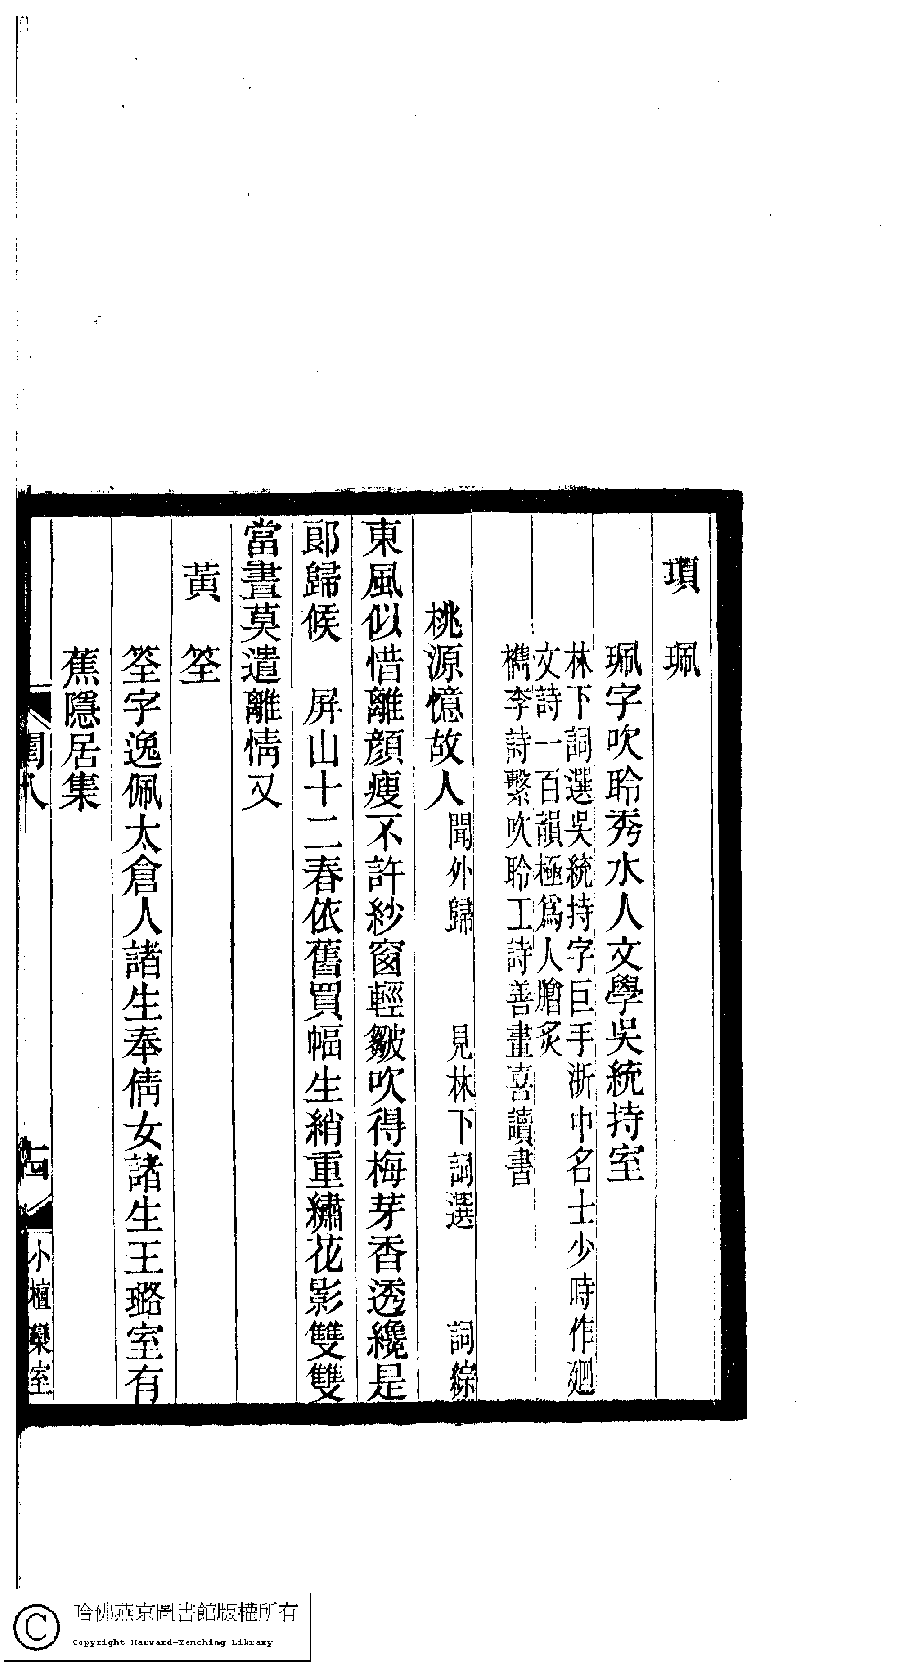 項珮
珮字吹聆秀水人文學吳統持室
林下詞選吳統持字巨手浙中名士少時作廻
文詩一百韻極爲人膾炙
檇李詩繫吹聆工詩善畫喜讀書
桃源憶故人 聞外歸 見林下詞選 詞綜
東風似惜離顔瘦不許紗窗輕皺吹得梅芽香透纔是
郎歸候 屏山十二春依舊買幅生綃重繡花影雙雙
當晝莫遣離情又
黃筌
筌字逸佩太倉人諸生奉倩女諸生王璐室有
蕉隱居集
閨八
小檀欒室
哈佛燕京圖書館版權所有
Copyright Harvard-Yenching Library